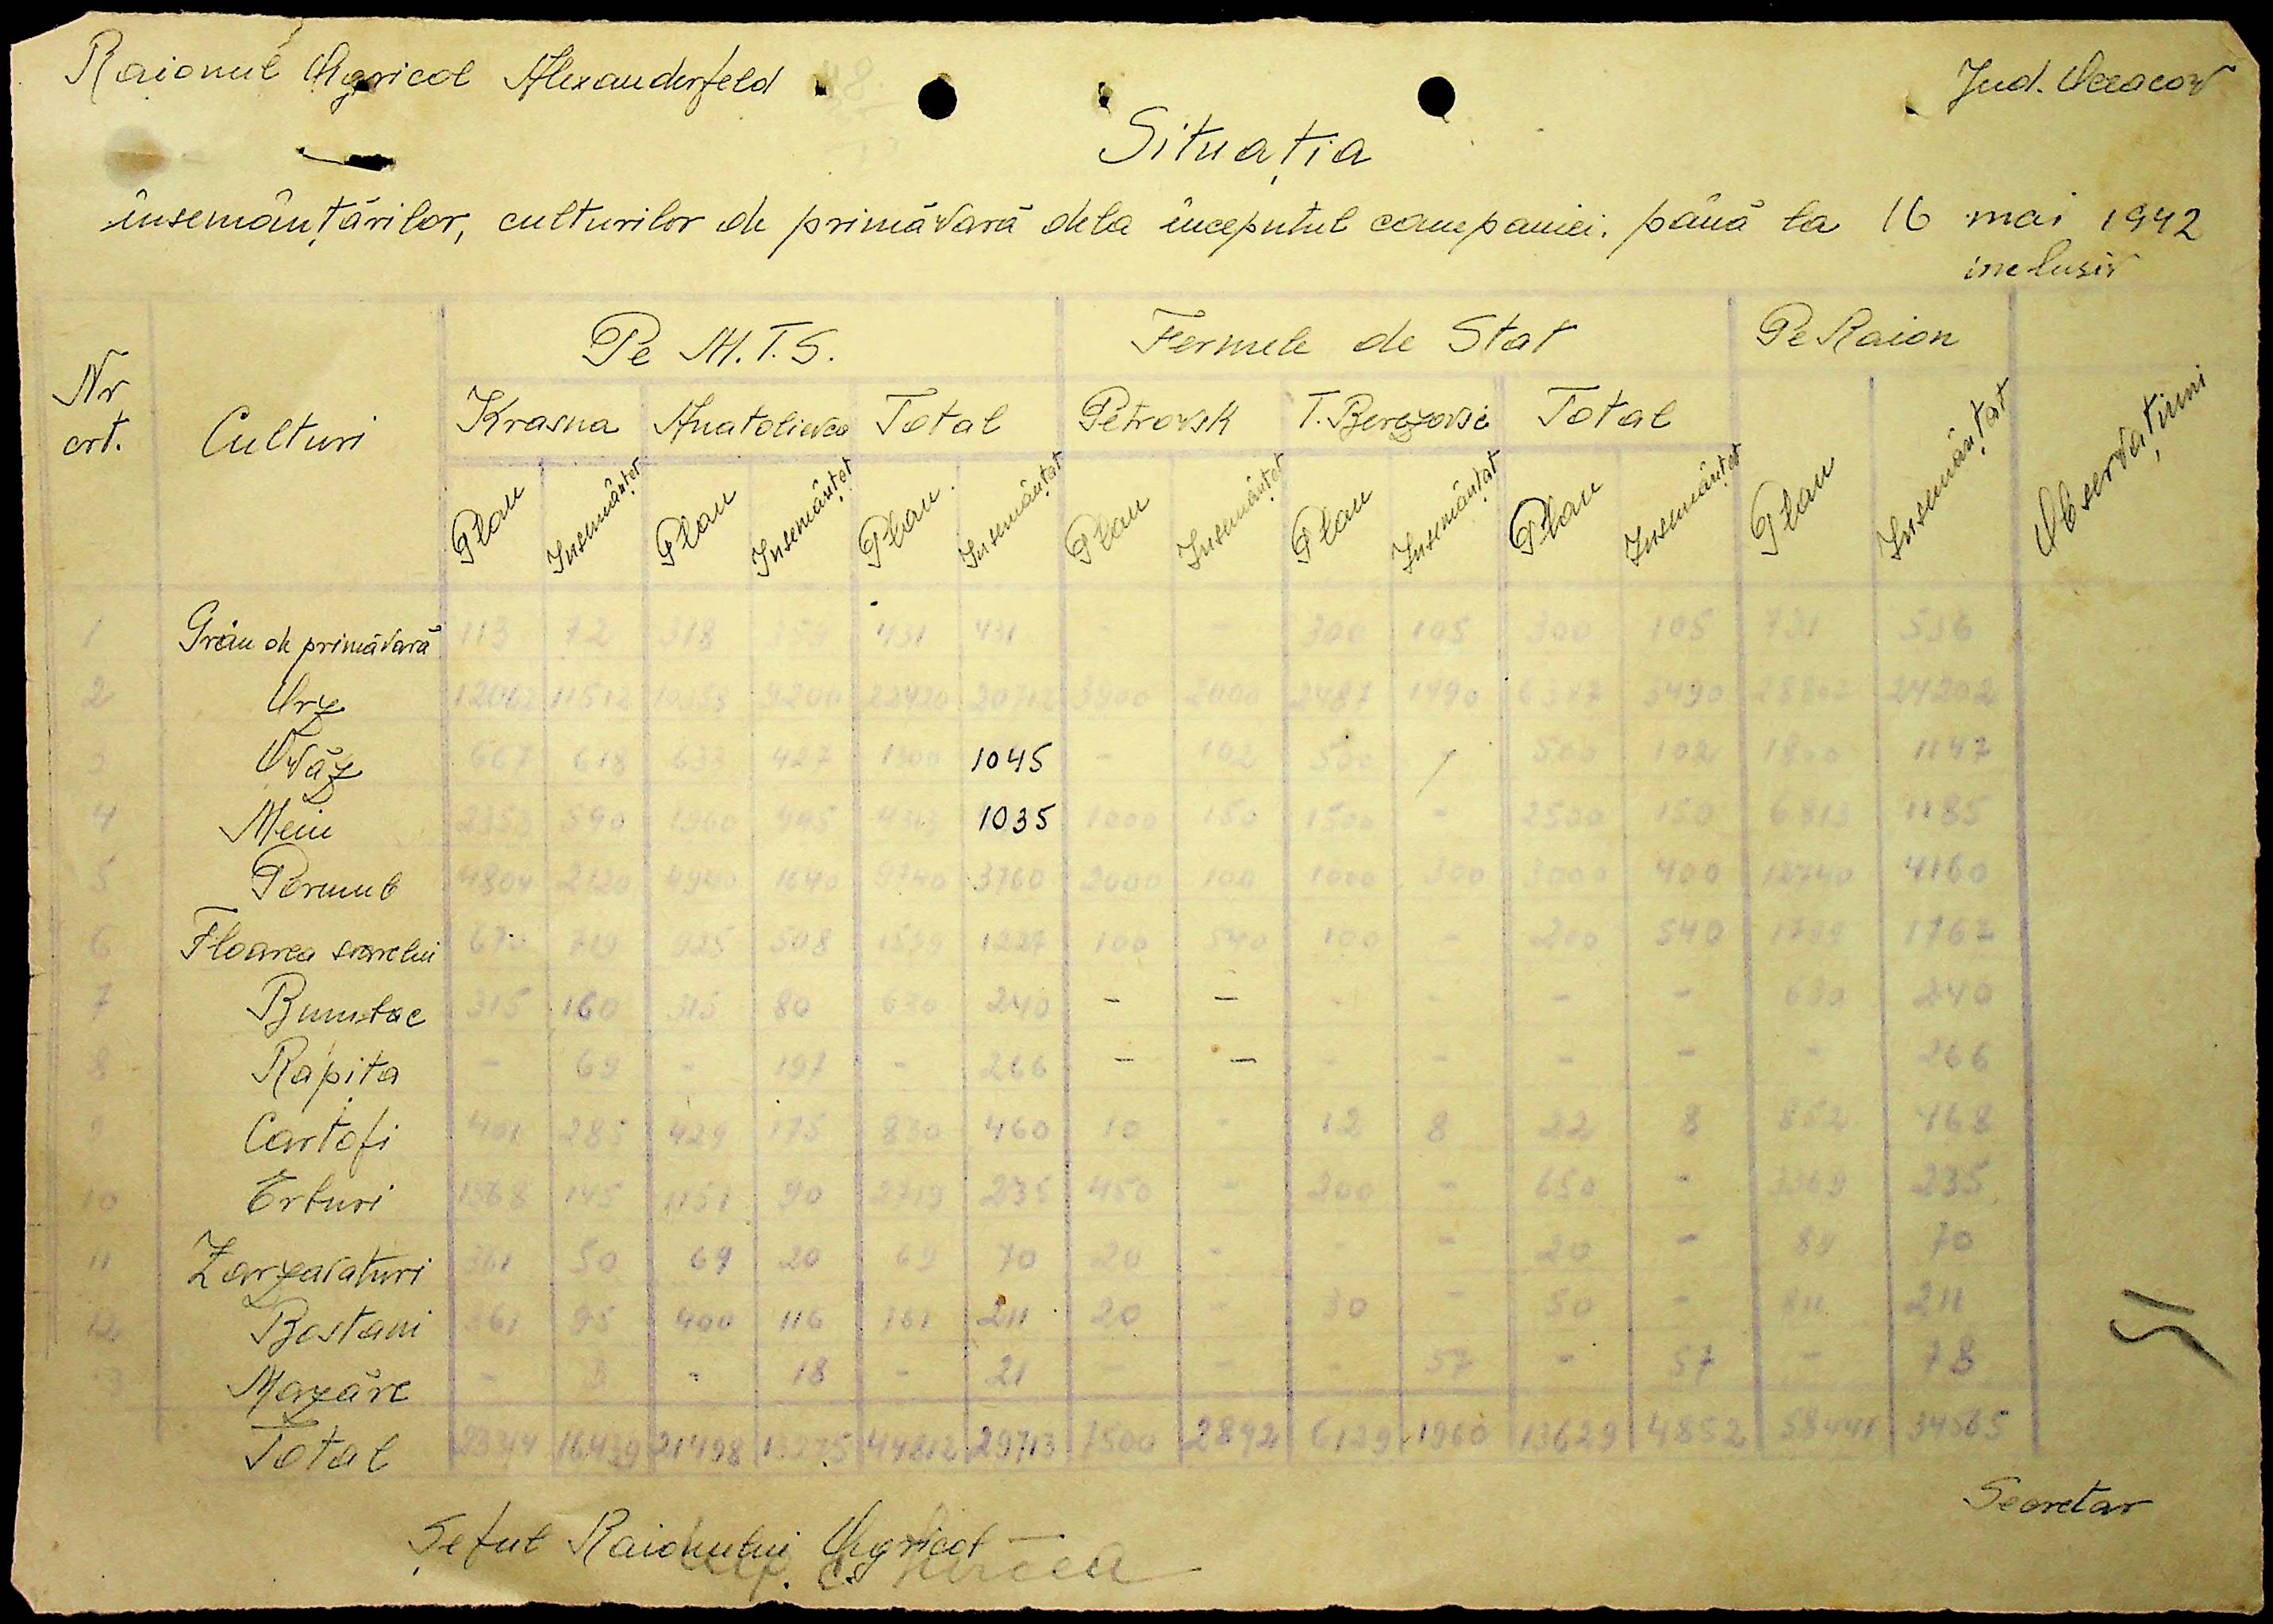 Raionul Agricol Alexanderfeld
Jud. Oceacov
Situația
însemânțărilor, culturilor de primăvară dela începutul campaniei. până la 16 mai 1942
inclusiv
Nr crt. Culturi Pe M.T.S. Fermele de Stat Pe Raion Observațiuni
Krasna Anatolievca Total Petrovsk T. Berezovsĉi Total
Plan Insemânțat Plan Insemânțat Plan Insemânțat Plan Insemânțat Plan Insemânțat Plan Insemânțat Plan Insemânțat
1 Grâu de primăvară 113 72 318 431 431 - - 300 105 300 105 731 536
2 Orz 11512 4200 20712 2000 2487 1490 3490 24202
3 Ovăz 667 618 633 427 1300 1045 - 102 500 500 102 1800 1147
4 Meiu 2353 590 1960 445 1035 1000 150 1500 - 2500 150 6813 1185
5 Porumb 4804 2120 1640 3760 2000 100 1000 300 3000 400 4160
6 Floarea soarelui 719 508 1227 100 540 100 - 200 540 1767
7 Bumbac 315 160 315 80 630 240 - - - - - - 630 240
8 Rapița - 69 - 197 - 266 - - - - - - - 266
9 Cartofi 401 285 429 175 830 460 10 - 12 8 22 8 852 468
10 Erburi 1568 145 1151 90 2719 235 450 - 200 - 650 - 3369 235
11 Zarzavaturi 50 69 20 69 70 20 - - - 20 - 89 70
12 Bostani 361 95 400 116 761 211 20 - 30 - 50 - 811 211
Mazăre - - 18 - 21 - - - 57 - 57 - 78
Total 16439 21498 13275 44812 29713 7500 2892 6129 1960 13629 4852 58441 34565
Secretar
Șeful Raionului Agricol